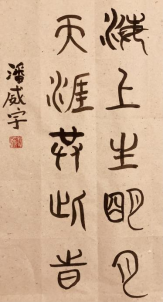 海上生明月
天涯共此时
潘威宇